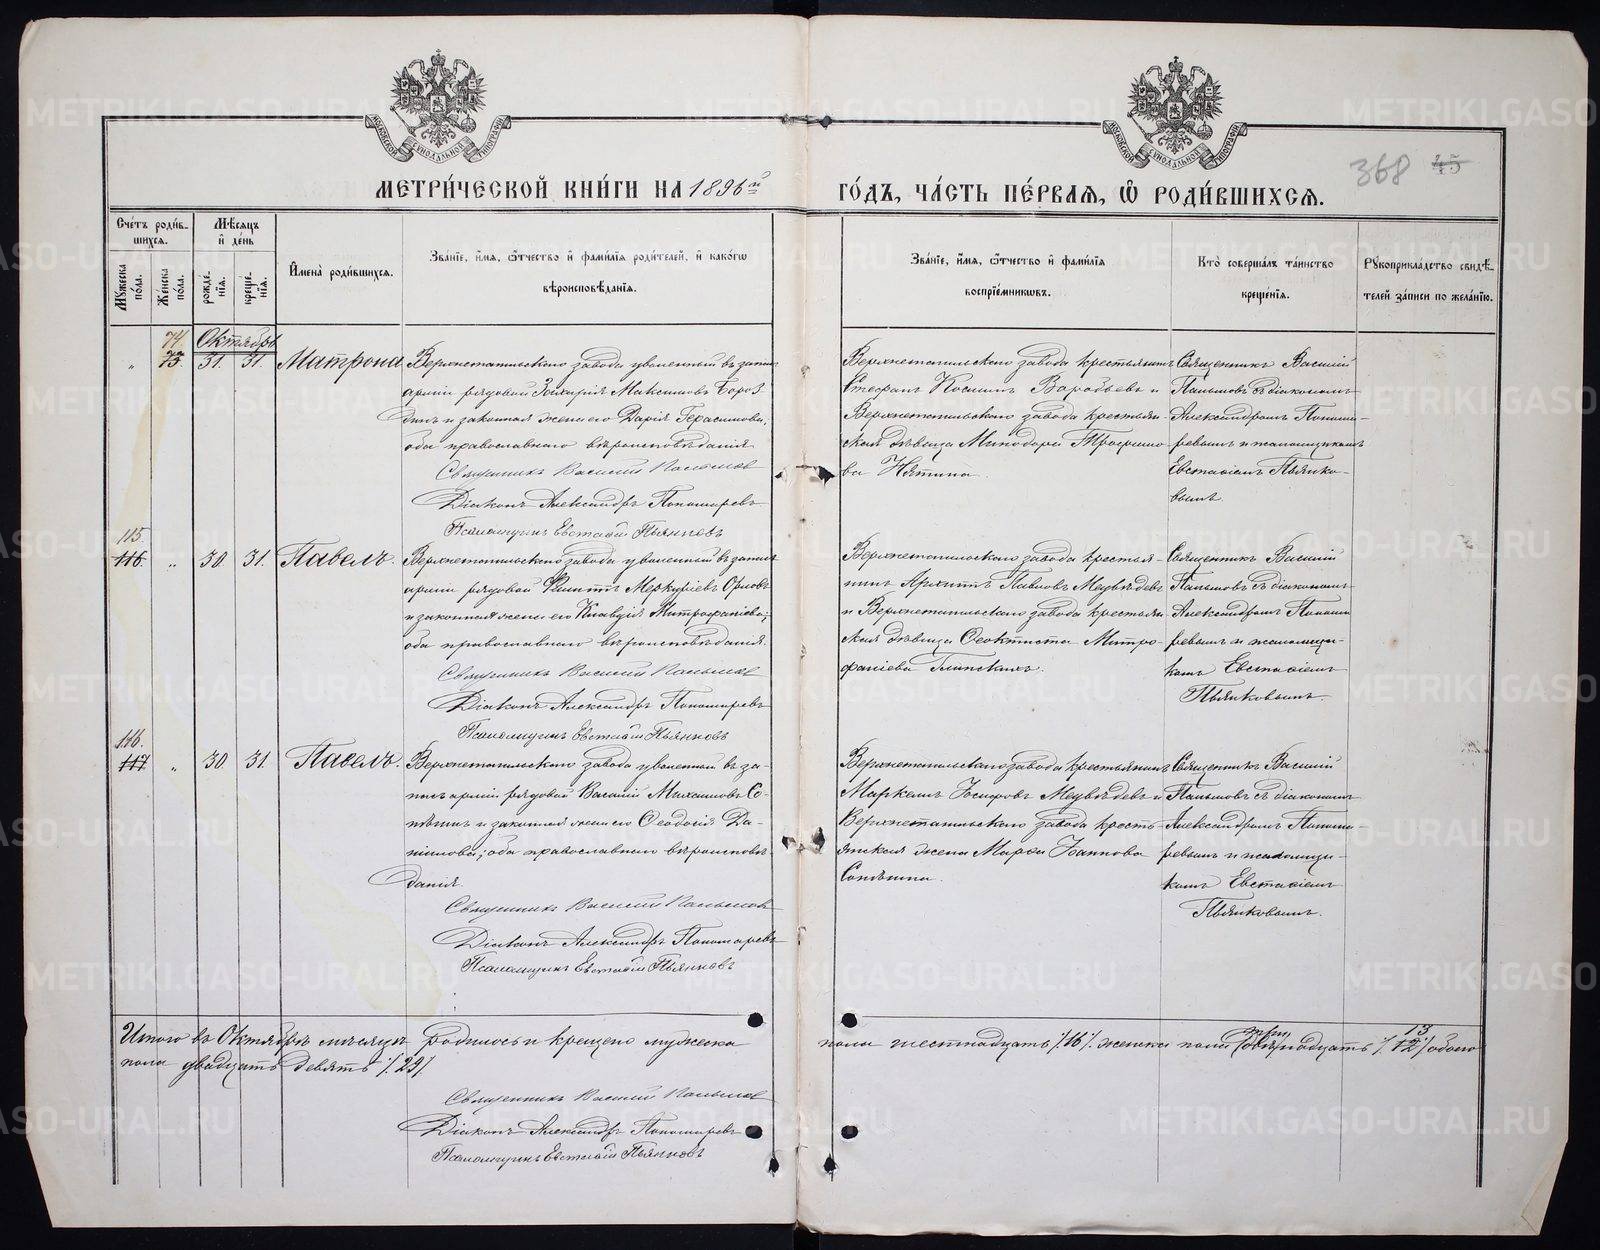 МОСКОВСКОЙ СѴНОДАЛЬНОЙ ТИПОГРАФІИ
МОСКОВСКОЙ СѴНОДАЛЬНОЙ ТИПОГРАФІИ
368 45
МЕТРИ́ЧЕСКОЙ КНИ́ГИ НА 1896й
ГО́ДЪ, ЧА́СТЬ ПЕ́РВАЯ, Ѿ РОДИ́ВШИХСЯ.
Сче́тъ роди́в-
шихся.
Мꙋжеска по́ла.
Же́нска по́ла.
Мѣ́сяцъ и де́нь
рожде́нїя.
креще́нїя.
И҆мена̀ роди́вшихся.
Зва́нїе, и҆́мя, ѻ҆́тчество и҆ фами́лїя роди́телей, и҆ како́гѡ
вѣроисповѣ́данїя.
Зва́нїе, и҆́мя, ѻ҆́тчество и҆ фами́лїя
воспрїе́мникѡвъ.
Кто̀ соверша́лъ та́инство
креще́нїя.
Рꙋкоприкла́дство свидѣ́-
телей за́писи по жела́нїю.
74.
Октябрь
„ 73. 31. 31. Матрона
Верхнетагильскаго завода уволенный въ запас
арміи рядовой Захарія Максимовъ Бороз-
динъ и законная жена его Дарія Герасимова,
оба православнаго вѣроисповѣданія
Священникъ Василій Пальмовъ
Діаконъ Александръ Пономаревъ
Псаломщикъ Евстафій Пьянковъ
Верхнетагильскаго завода крестьянинъ
Стефанъ Косминъ Воробьевъ и
Верхнетагильскаго завода крестьян-
ская дѣвица Минодора Трофимо-
ва
Священникъ Василій
Пальмовъ съ діакономъ
Александромъ Понома-
ревымъ и псаломщикомъ
Евстафіемъ Пьянко-
вымъ.
115.
116. „ 30. 31. Павелъ.
Верхнетагильскаго завода уволенный въ запас
арміи рядовой Филиппъ Меркуріевъ Орловъ
и законная жена его Клавдія Митрофанова;
оба православнаго вѣроисповѣданія.
Священникъ Василій Пальмовъ
Діаконъ Александръ Пономаревъ
Псаломщикъ Евстафій Пьянковъ
Верхнетагильскаго завода крестья-
нинъ Архиппъ Павловъ Медвѣдевъ
и Верхнетагильскаго завода крестьян-
ская дѣвица Ѳеоктиста Митро-
фаніева Глинскихъ.
Священникъ Василій
Пальмовъ съ діакономъ
Александромъ Понома-
ревымъ и псаломщи-
комъ Евстафіемъ
Пьянковымъ.
116.
117. „ 30. 31. Павелъ.
Верхнетагильскаго завода уволенный въ за-
пасъ арміи рядовой Василій Михаиловъ Со-
пѣшинъ и законная жена его Ѳеодосія Да-
ніилова; оба православнаго вѣроисповѣ-
данія.
Священникъ Василій Пальмовъ
Діаконъ Александръ Пономаревъ
Псаломщикъ Евстафій Пьянковъ
Верхнетагильскаго завода крестьянинъ
Маркеллъ Іосифовъ Медвѣдевъ и
Верхнетагильскаго завода кресть-
янская жена Марѳа Іоаннова
Священникъ Василій
Пальмовъ съ діакономъ
Александромъ Понома-
ревымъ и псаломщи-
комъ Евстафіемъ
Пьянковымъ.
Итого въ Октябрѣ мѣсяцѣ родилось и крещено мужеска
пола шестнадцать /16/ женска пола три двѣнадцать /12/ 13 обоего
пола двадцать девять /29/.
Священникъ Василій Пальмовъ
Діаконъ Александръ Пономаревъ
Псаломщикъ Евстафій Пьянковъ
METRIKI.GASO-URAL.RU